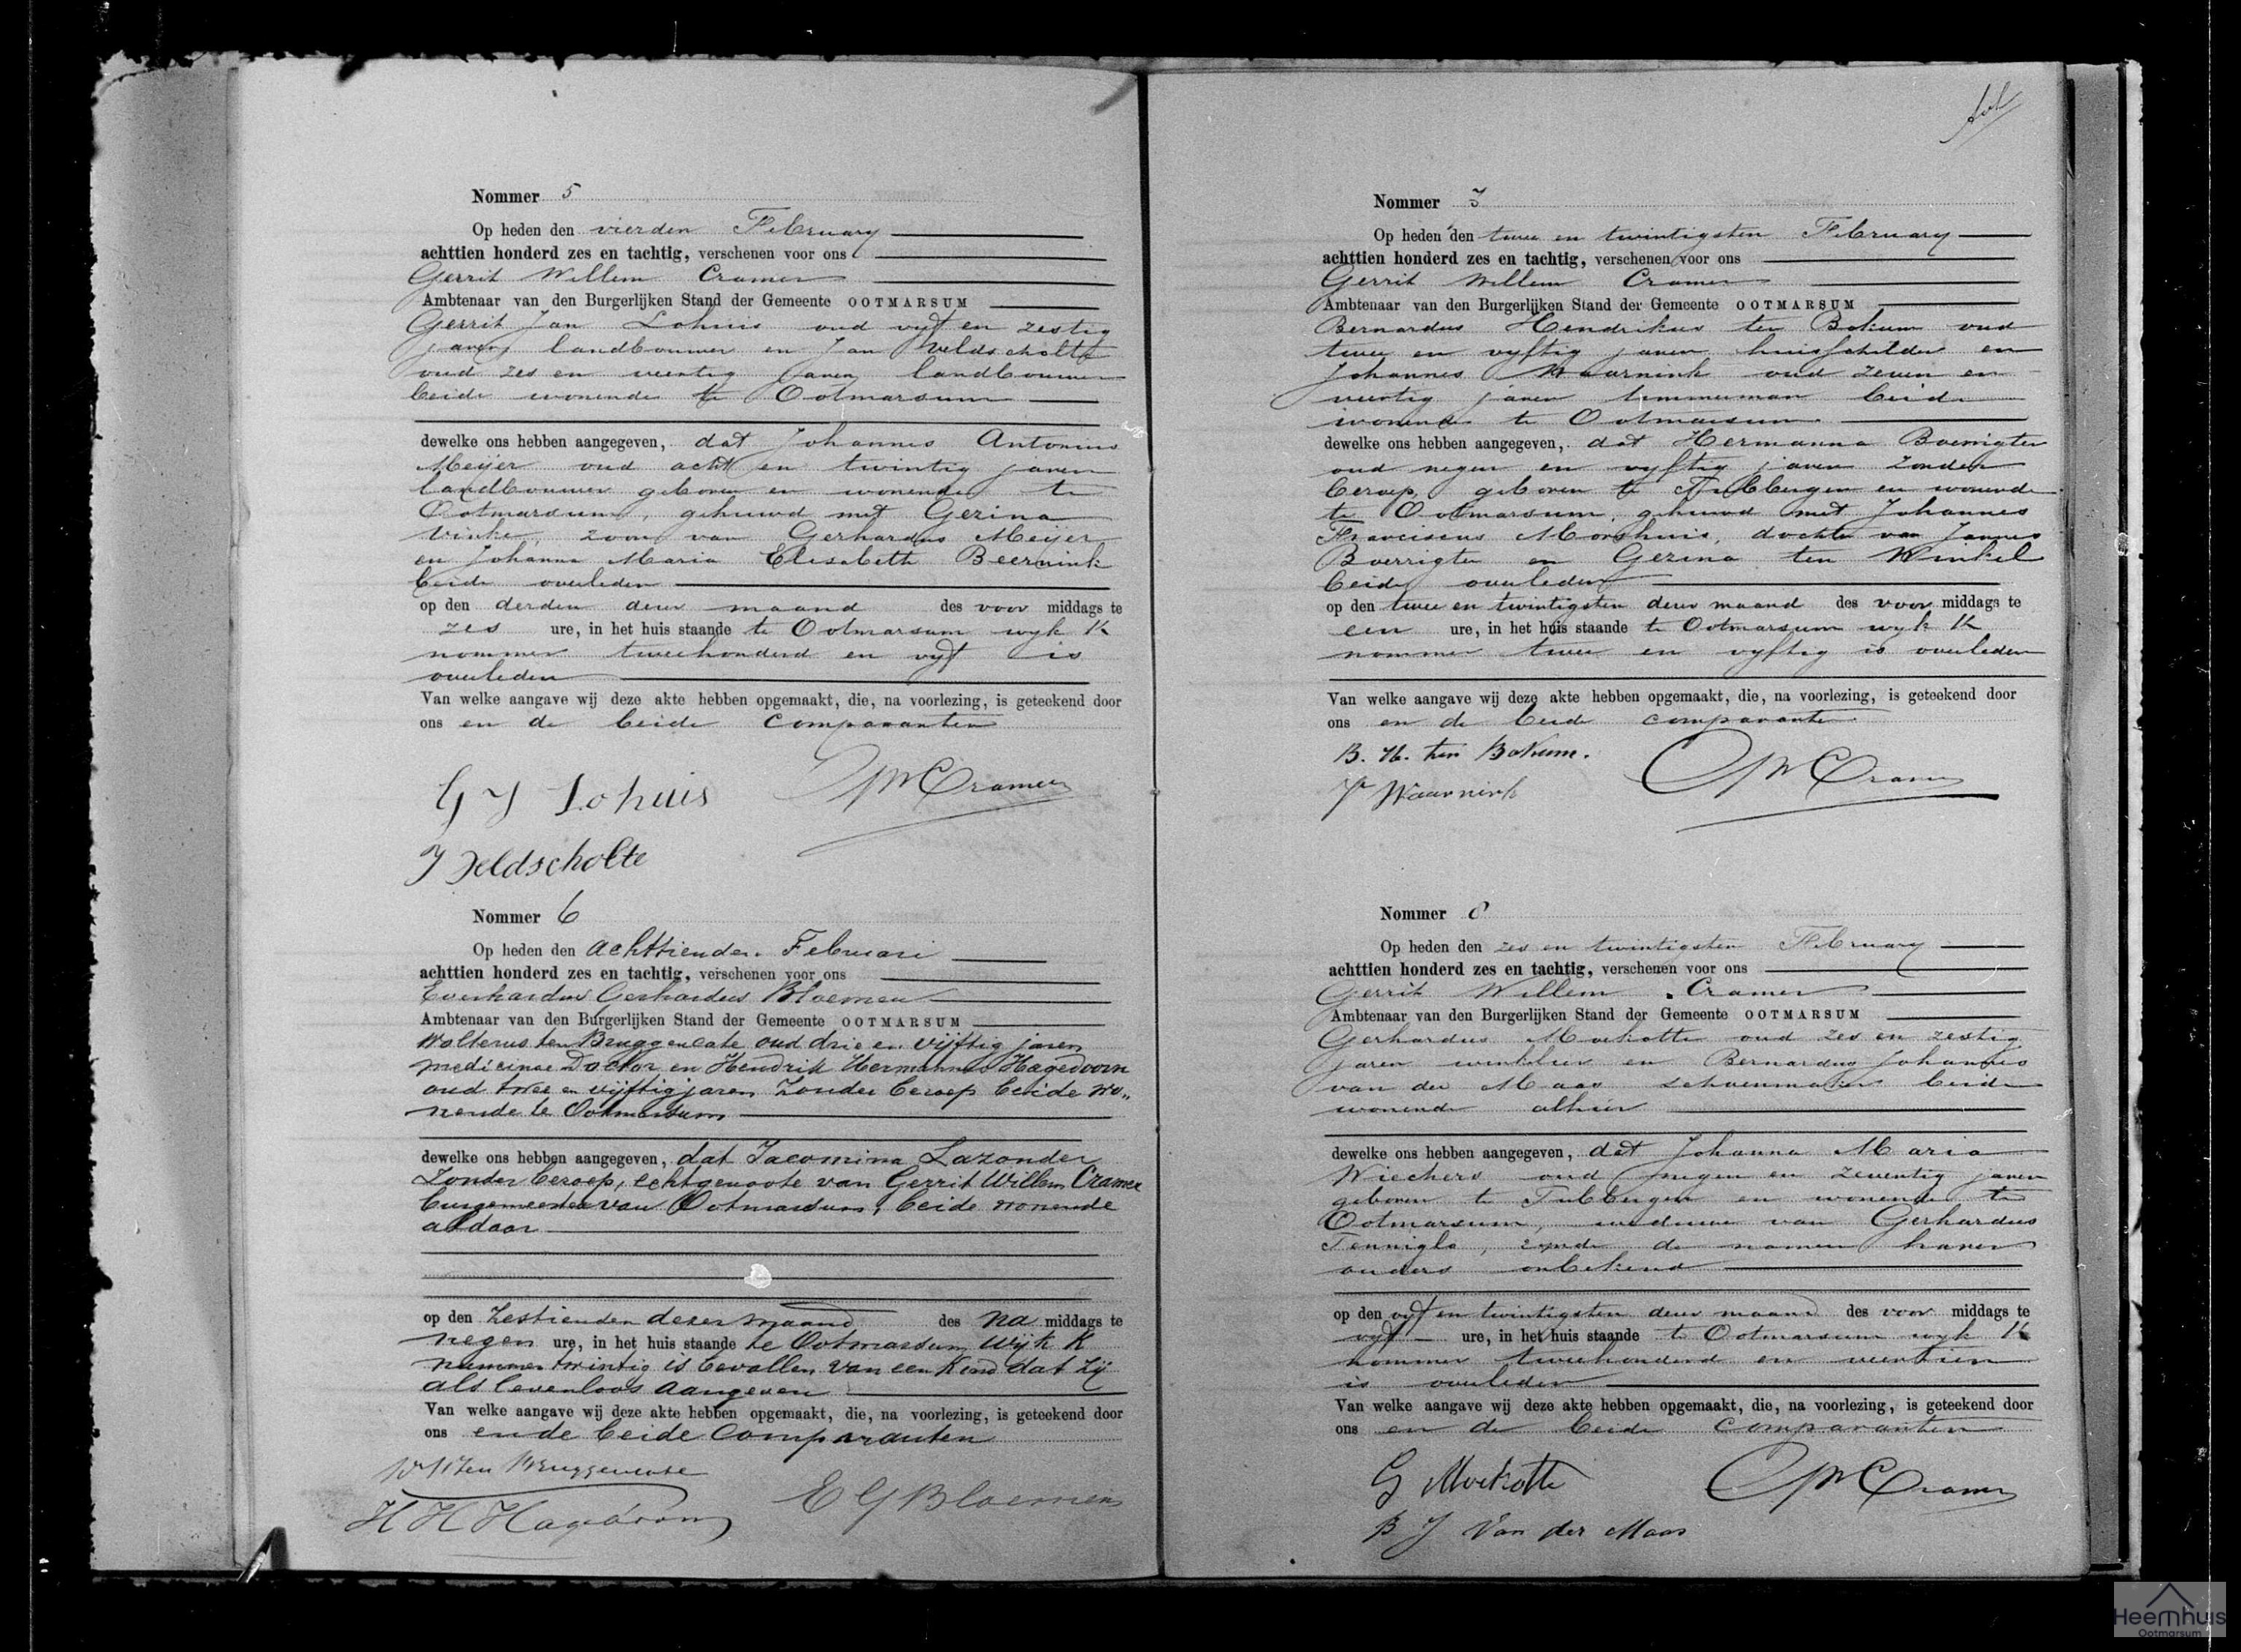 Nommer 5
Op heden den vierden February
achttien honderd zes en tachtig, verschenen voor ons
Gerrit Willem Cramer
Ambtenaar van den Burgerlijken Stand der Gemeente OOTMARSUM
Gerrit Jan Lohuis oud vyf en zestig
jaren landbouwer en Jan Veldscholte
oud zes en veertig jaren landbouwer
beide wonende te Ootmarsum
dewelke ons hebben aangegeven, dat Johannes Antonius
Meijer oud acht en twintig jaren
landbouwer geboren en wonende te
Ootmarsum, gehuwd met Gezina
Vinke, zoon van Gerhardus Meijer
en Johanna Maria Elisabeth Beernink
beide overleden
op den derden dezer maand des voor middags te
zes ure, in het huis staande te Ootmarsum wyk K
nommer tweehonderd en vyf is
overleden
Van welke aangave wij deze akte hebben opgemaakt, die, na voorlezing, is geteekend door
ons en de beide comparanten
G J Lohuis GWCramer
J Veldscholte
Nommer 6
Op heden den achttienden Februari
achttien honderd zes en tachtig, verschenen voor ons
Everhardus Gerhardus Bloemen
Ambtenaar van den Burgerlijken Stand der Gemeente OOTMARSUM
Wolterus ten Bruggencate oud drie en vijftig jaren
medicinae Doctor en Hendrik Hermannus Hagedoorn
oud twee en vijftig jaren Zonder beroep beide wo„
nende te Ootmarsum
dewelke ons hebben aangegeven, dat Jacomina Lazonder
Zonder beroep, echtgenoote van Gerrit Willem Cramer
burgemeester van Ootmarsum, beide wonende
aldaar
op den Zestienden dezer maand des na middags te
negen ure, in het huis staande te Ootmarsum Wijk K
nummer twintig is bevallen van een Kind dat zij
als levenloos aangeven
Van welke aangave wij deze akte hebben opgemaakt, die, na voorlezing, is geteekend door
ons en de beide Comparanten
ten Bruggencate
H H Hagedoorn E G Bloemen
Nommer 7
Op heden den twee en twintigsten February
achttien honderd zes en tachtig, verschenen voor ons
Gerrit Willem Cramer
Ambtenaar van den Burgerlijken Stand der Gemeente OOTMARSUM
Bernardus Hendrikus ten Bokum oud
twee en vyftig jaren huisschilder en
Johannes Waarnink oud zeven en
veertig jaren timmerman beide
wonende te Ootmarsum
dewelke ons hebben aangegeven, dat Hermanna Boerrigter
oud negen en vyftig jaren zonder
beroep, geboren te Tubbergen en wonende
te Ootmarsum, gehuwd met Johannes
Franciscus Morshuis, dochter van Jannes
Boerrigter en Gezina ten Winkel
beide overleden
op den twee en twintigsten dezer maand des voor middags te
een ure, in het huis staande te Ootmarsum wyk K
nommer twee en vyftig is overleden
Van welke aangave wij deze akte hebben opgemaakt, die, na voorlezing, is geteekend door
ons en de beide comparanten
B. H. ten Bokum. GWCramer
J Waarnink
Nommer 8
Op heden den zes en twintigsten February
achttien honderd zes en tachtig, verschenen voor ons
Gerrit Willem Cramer
Ambtenaar van den Burgerlijken Stand der Gemeente OOTMARSUM
Gerhardus Moekotte oud zes en zestig
jaren winkelier en Bernardus Johannes
van der Maas schoenmaker beide
wonende alhier
dewelke ons hebben aangegeven, dat Johanna Maria
Wiechers oud negen en zeventig jaren
geboren te Tubbergen en wonende te
Ootmarsum, weduwe van Gerhardus
Tenniglo, zynde de namen harer
ouders onbekend
op den vyf en twintigsten dezer maand des voor middags te
vyf ure, in het huis staande te Ootmarsum wyk K
nommer tweehonderd en veertien
is overleden
Van welke aangave wij deze akte hebben opgemaakt, die, na voorlezing, is geteekend door
ons en de beide comparanten
G Moekotte GWCramer
B J Van der Maas
Heemhuis
Ootmarsum